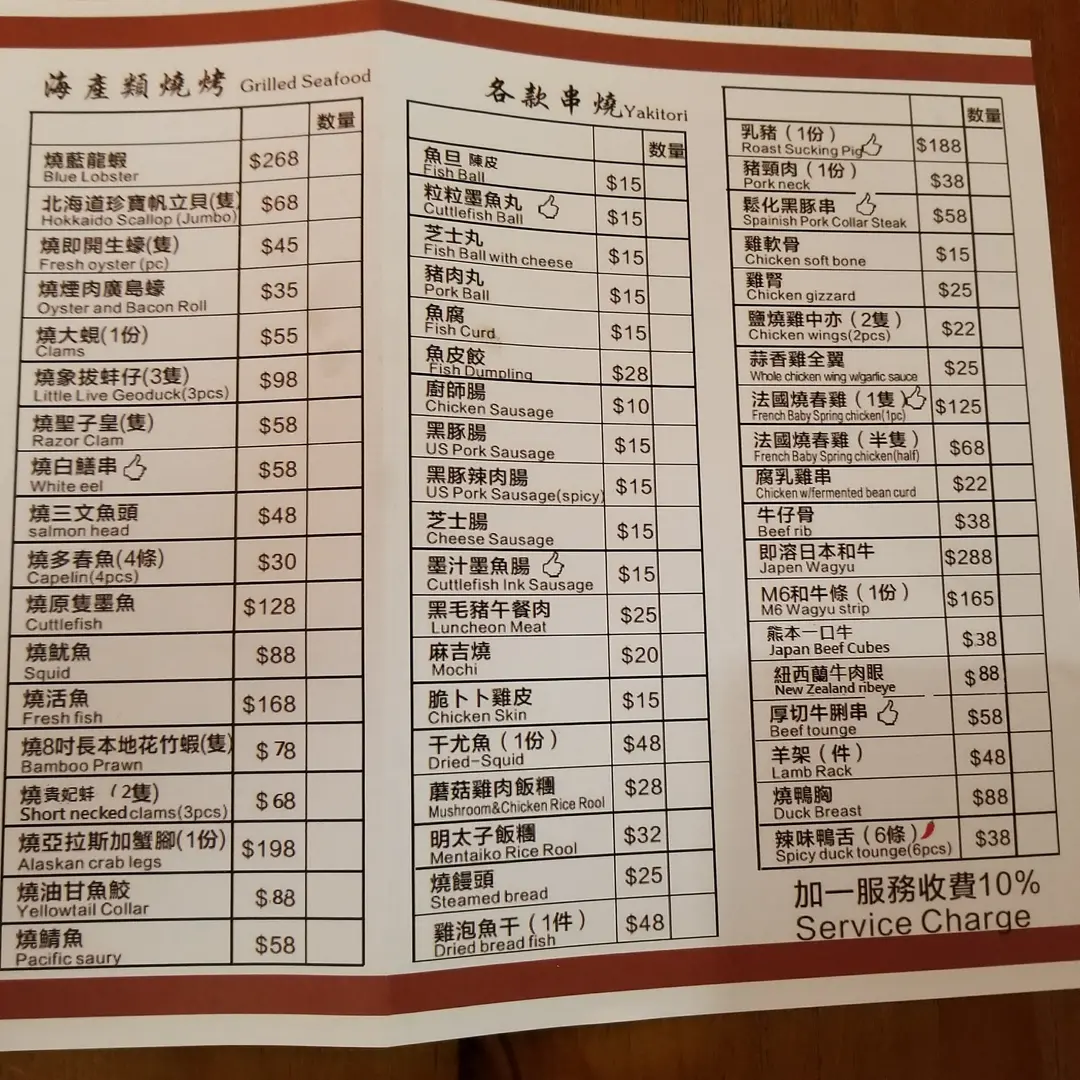 海產類燒烤 Grilled Seafood
数量
燒藍龍蝦 $268
Blue Lobster
北海道珍寶帆立貝(隻) $68
Hokkaido Scallop (Jumbo)
燒即開生蠔(隻) $45
Fresh oyster (pc)
燒煙肉廣島蠔 $35
Oyster and Bacon Roll
燒大蜆(1份) $55
Clams
燒象拔蚌仔(3隻) $98
Little Live Geoduck(3pcs)
燒聖子皇(隻) $58
Razor Clam
燒白鱔串 $58
White eel
燒三文魚頭 $48
salmon head
燒多春魚(4條) $30
Capelin(4pcs)
燒原隻墨魚 $128
Cuttlefish
燒魷魚 $88
Squid
燒活魚 $168
Fresh fish
燒8吋長本地花竹蝦(隻) $78
Bamboo Prawn
燒貴妃蚌 (2隻) $68
Short necked clams(3pcs)
燒亞拉斯加蟹腳(1份) $198
Alaskan crab legs
燒油甘魚鮫 $88
Yellowtail Collar
燒鯖魚 $58
Pacific saury
各款串燒 Yakitori
数量
魚旦 陳皮 $15
Fish Ball
粒粒墨魚丸 $15
Cuttlefish Ball
芝士丸 $15
Fish Ball with cheese
豬肉丸 $15
Pork Ball
魚腐 $15
Fish Curd
魚皮餃 $28
Fish Dumpling
廚師腸 $10
Chicken Sausage
黑豚腸 $15
US Pork Sausage
黑豚辣肉腸 $15
US Pork Sausage(spicy)
芝士腸 $15
Cheese Sausage
墨汁墨魚腸 $15
Cuttlefish Ink Sausage
黑毛豬午餐肉 $25
Luncheon Meat
麻吉燒 $20
Mochi
脆卜卜雞皮 $15
Chicken Skin
干尤魚(1份) $48
Dried-Squid
蘑菇雞肉飯糰 $28
Mushroom&Chicken Rice Rool
明太子飯糰 $32
Mentaiko Rice Rool
燒饅頭 $25
Steamed bread
雞泡魚干(1件) $48
Dried bread fish
数量
乳豬(1份) $188
Roast Sucking Pig
豬頸肉(1份) $38
Pork neck
鬆化黑豚串 $58
Spainish Pork Collar Steak
雞軟骨 $15
Chicken soft bone
雞腎 $25
Chicken gizzard
鹽燒雞中亦(2隻) $22
Chicken wings(2pcs)
蒜香雞全翼 $25
Whole chicken wing w/garlic sauce
法國燒春雞(1隻) $125
French Baby Spring chicken(1pc)
法國燒春雞(半隻) $68
French Baby Spring chicken(half)
腐乳雞串 $22
Chicken w/fermented bean curd
牛仔骨 $38
Beef rib
即溶日本和牛 $288
Japen Wagyu
M6和牛條(1份) $165
M6 Wagyu strip
熊本一口牛 $38
Japan Beef Cubes
紐西蘭牛肉眼 $88
New Zealand ribeye
厚切牛脷串 $58
Beef tounge
羊架(件) $48
Lamb Rack
燒鴨胸 $88
Duck Breast
辣味鴨舌(6條) $38
Spicy duck tounge(6pcs)
加一服務收費10%
Service Charge